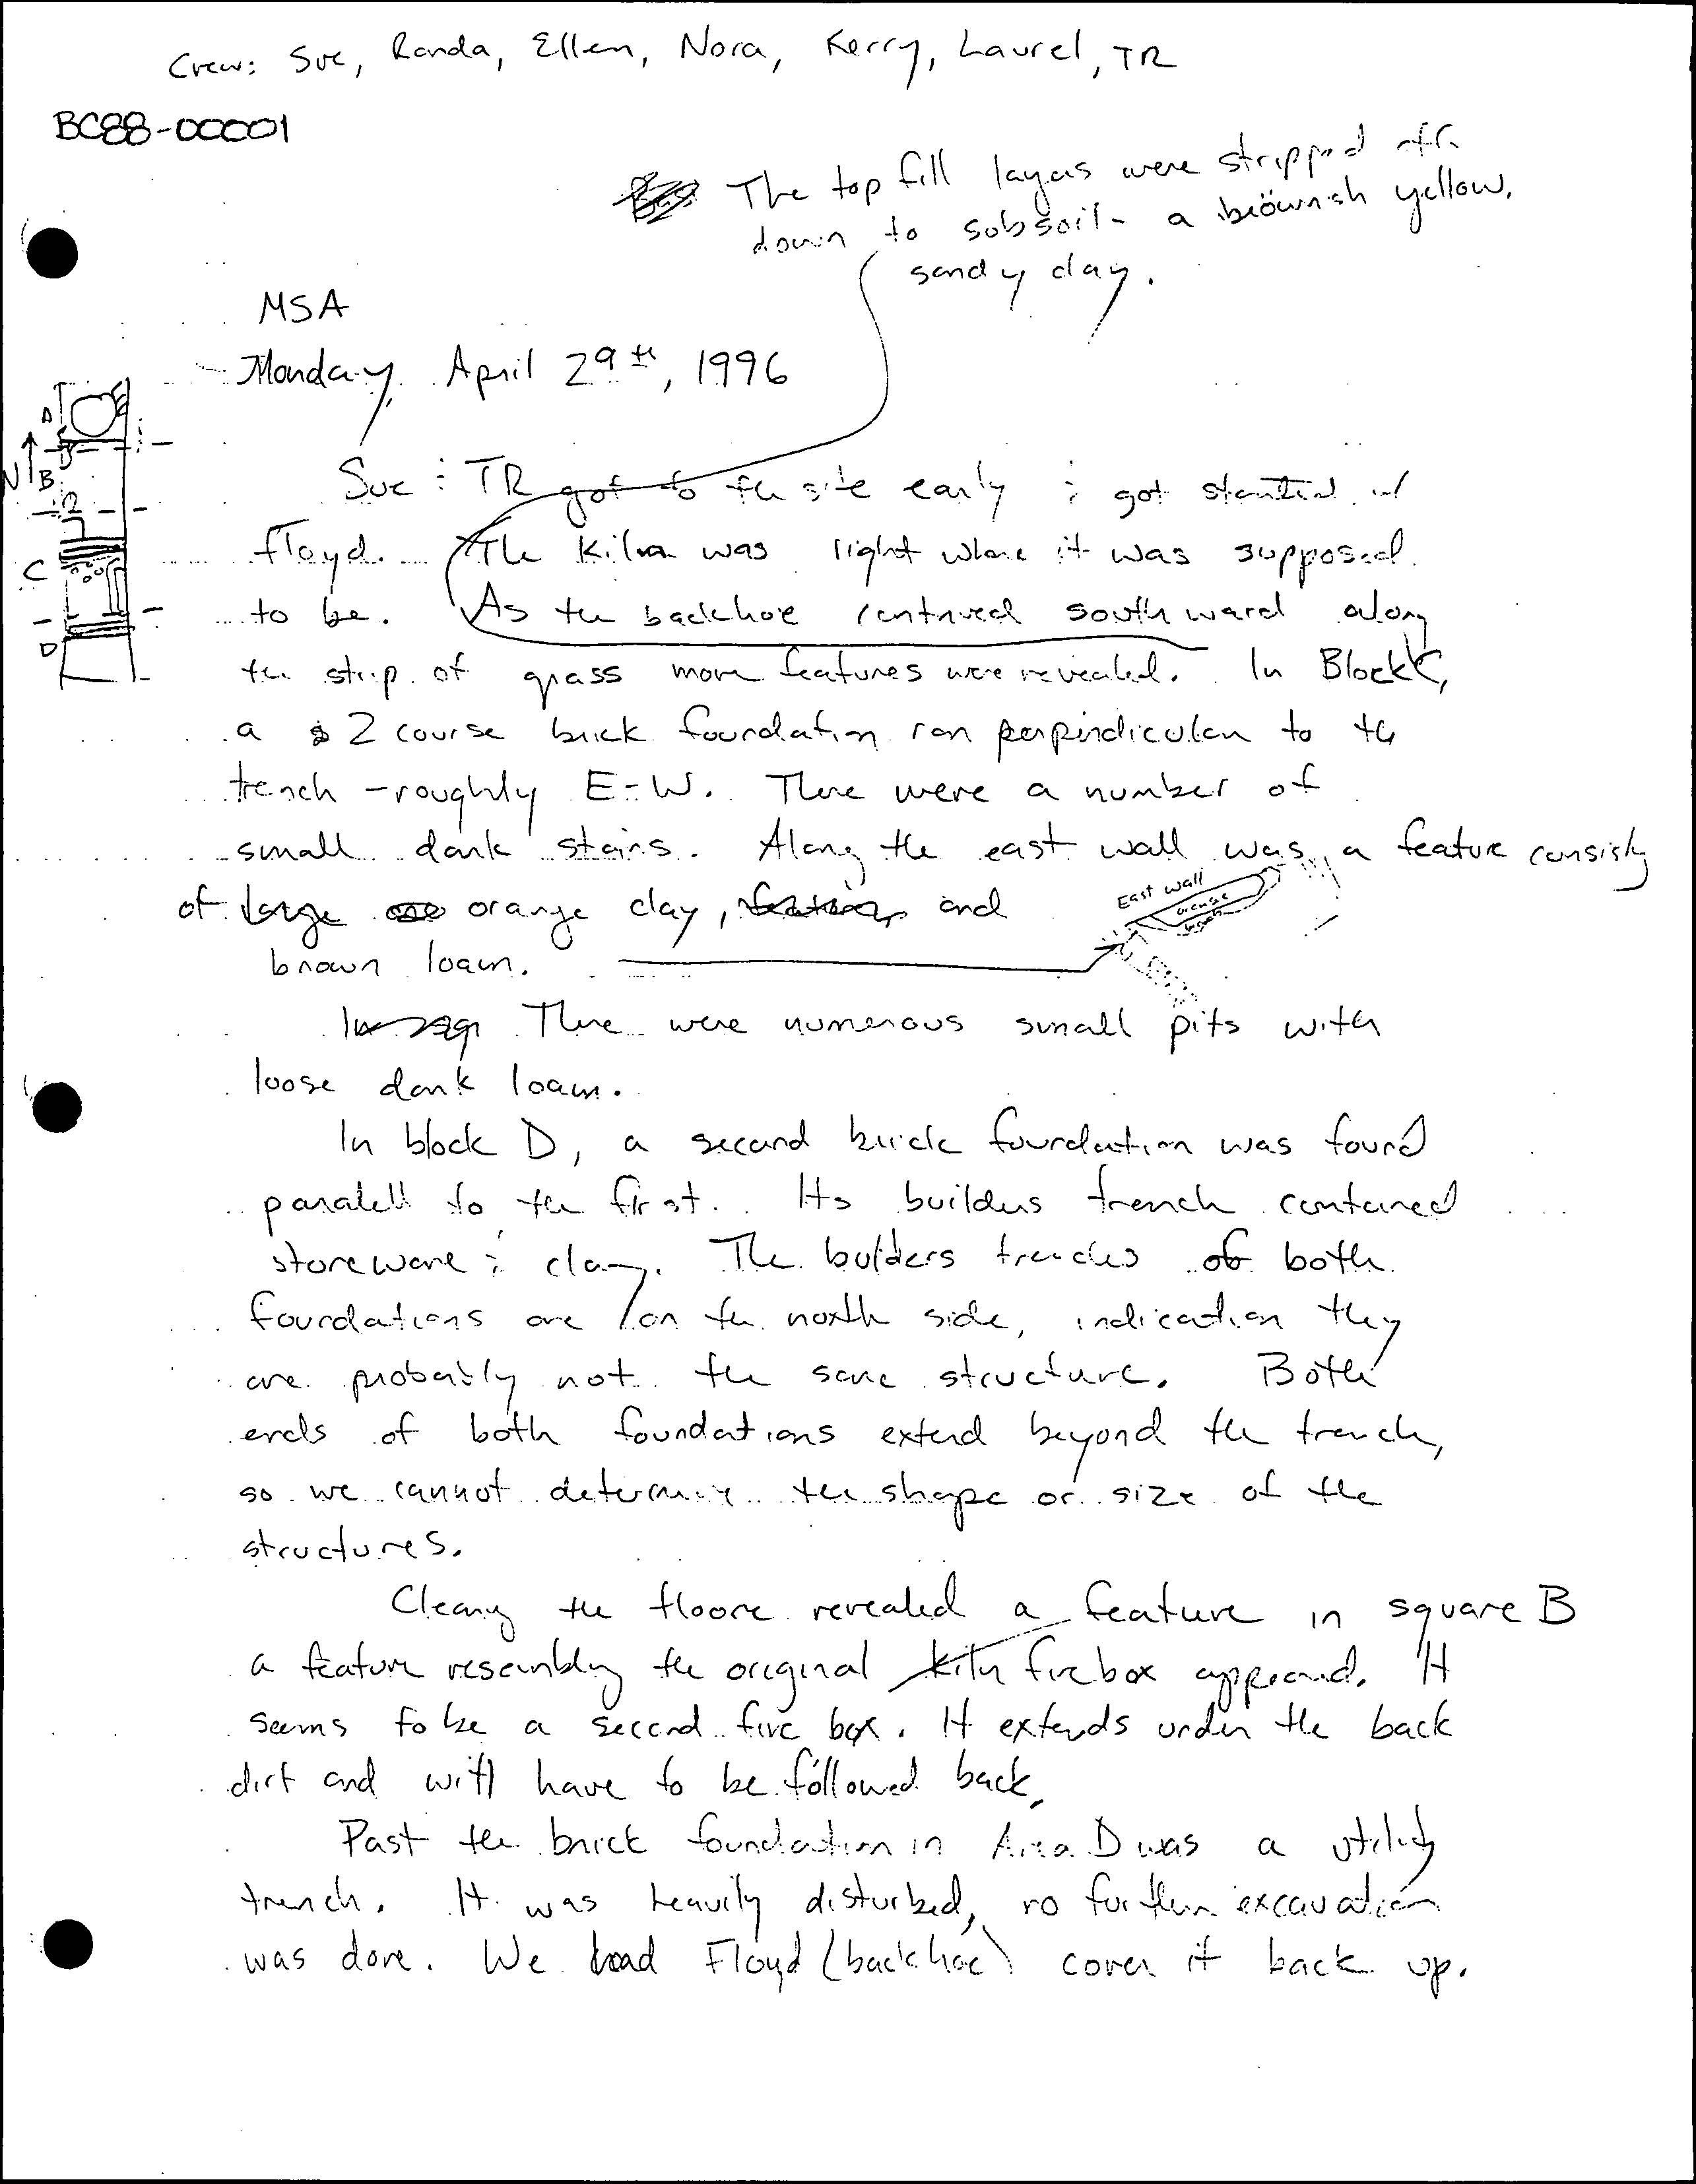 Crew: Sue, Randa, Ellen, Nora, Kerry, Laurel, TR
BC88-00001
The top fill layers were stripped off
down to subsoil - a brownish yellow,
sandy clay.
MSA
Monday, April 29th, 1996
A
N
B
C
D
Sue & TR got to the site early & got started w/
Floyd. The Kiln was right where it was supposed
to be. As the backhoe continued southward along
the strip of grass more features were revealed. In Block C,
a 2 course brick foundation ran perpindicular to the
trench - roughly E-W. There were a number of
small dark stains. Along the east wall was a feature consisting
of large orange clay, and
East wall
orange
brown
brown loam.
There were numerous small pits with
loose dark loam.
In block D, a second brick foundation was found
paralell to the first. Its builders trench contained
stoneware & clay. The builders trenches of both
foundations are on the north side, indication they
are probably not the same structure. Both
ends of both foundations extend beyond the trench,
so we cannot determine the shape or size of the
structures.
Cleaning the floore revealed a feature in square B
a feature resembling the original kiln firebox appeared. It
seems to be a second fire box. It extends under the back
dirt and will have to be followed back.
Past the brick foundation in Area D was a utility
trench. It was heavily disturbed, no further excavation
was done. We had Floyd (backhoe) cover it back up.